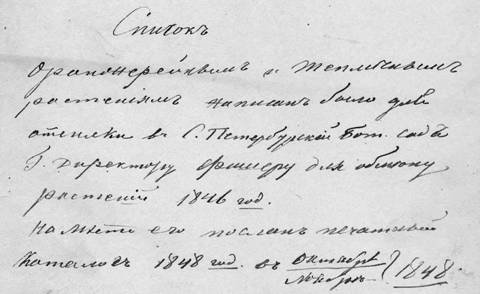 Списокъ
оранжерейнымъ и тепличнымъ
растеніямъ написанъ было для
отсылки въ С. Петербурскій Бот. садъ
Г. Директору Фишеру для обмѣну
растеній 1846 год.
На мѣсто его посланъ печатный
Каталогъ 1848 год. въ Октябрѣ
Ноябрѣ } 1848